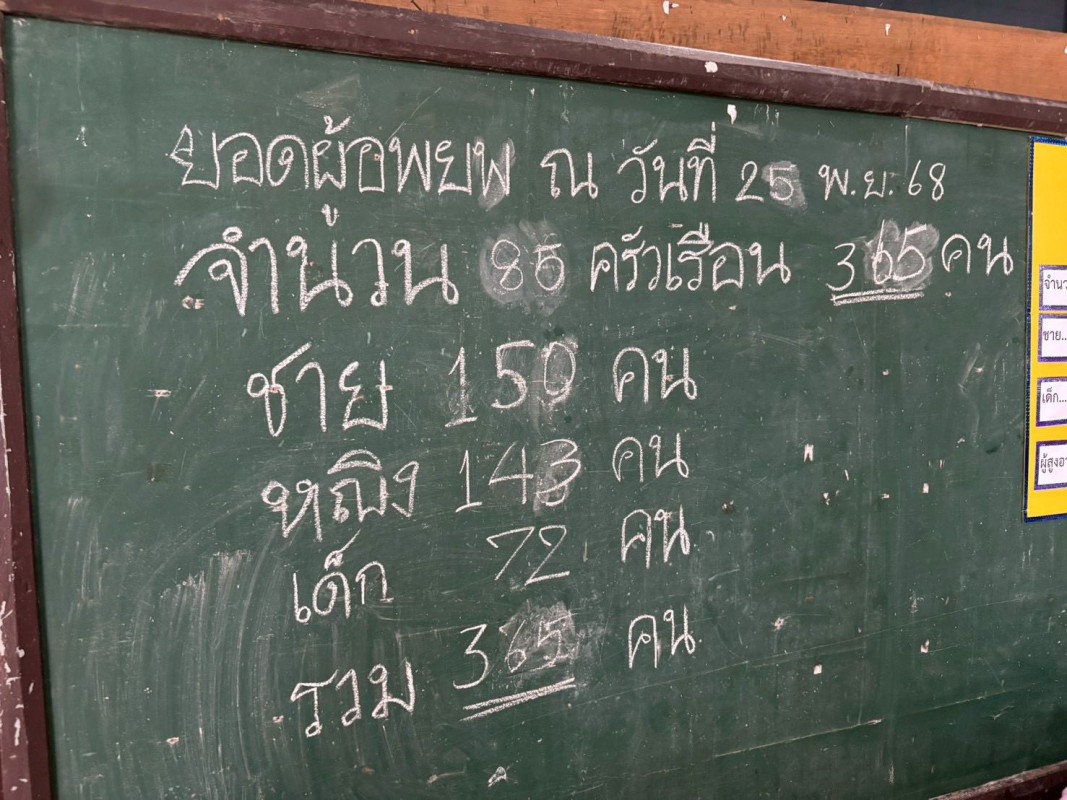 ยอดผู้อพยพ ณ วันที่ 25 พ.ย. 68
จำนวน 86 ครัวเรือน 365 คน
ชาย 150 คน
หญิง 143 คน
เด็ก 72 คน
รวม 365 คน
ชาย...
เด็ก...